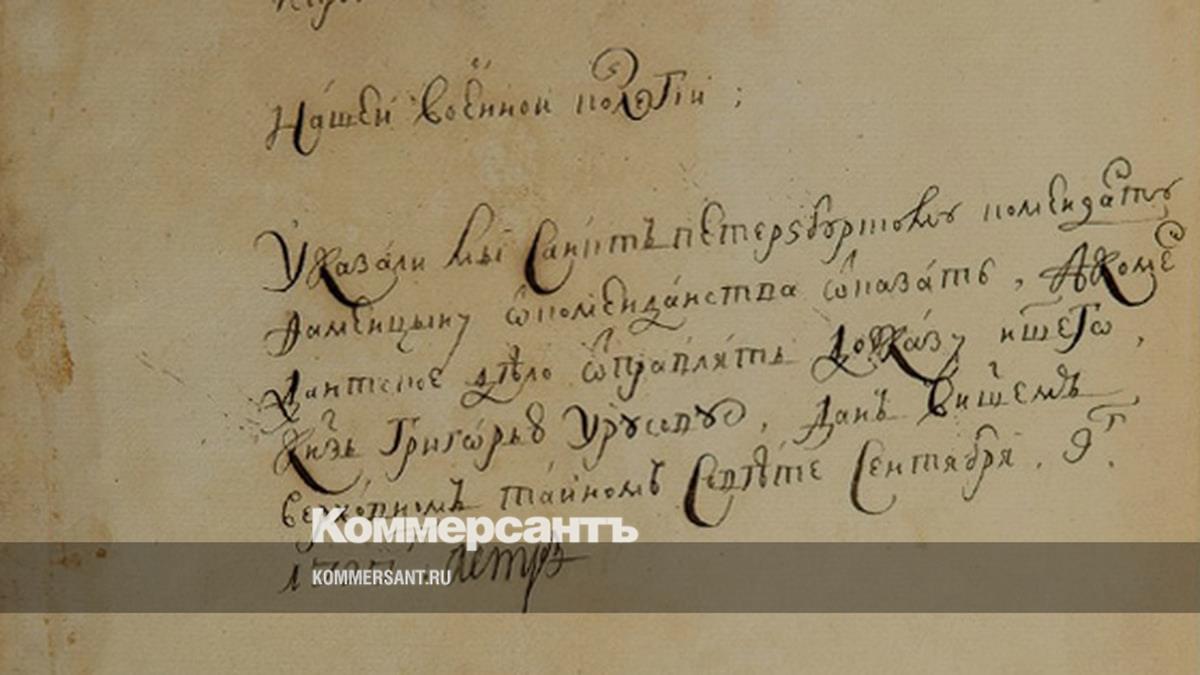 Нашей военной колегіи ;
Указали мы Санктъ петерзбургскому комендату
Фаминцыну ѿ комендантства ѿказать , А коме
дантское дѣло ѿправлять до указу ншего ,
Кнзь Григорью Урусову , Данъ в нашемъ
верховномъ тайномъ Совѣте Сентября . 9г .
Петръ
Коммерсантъ
KOMMERSANT.RU